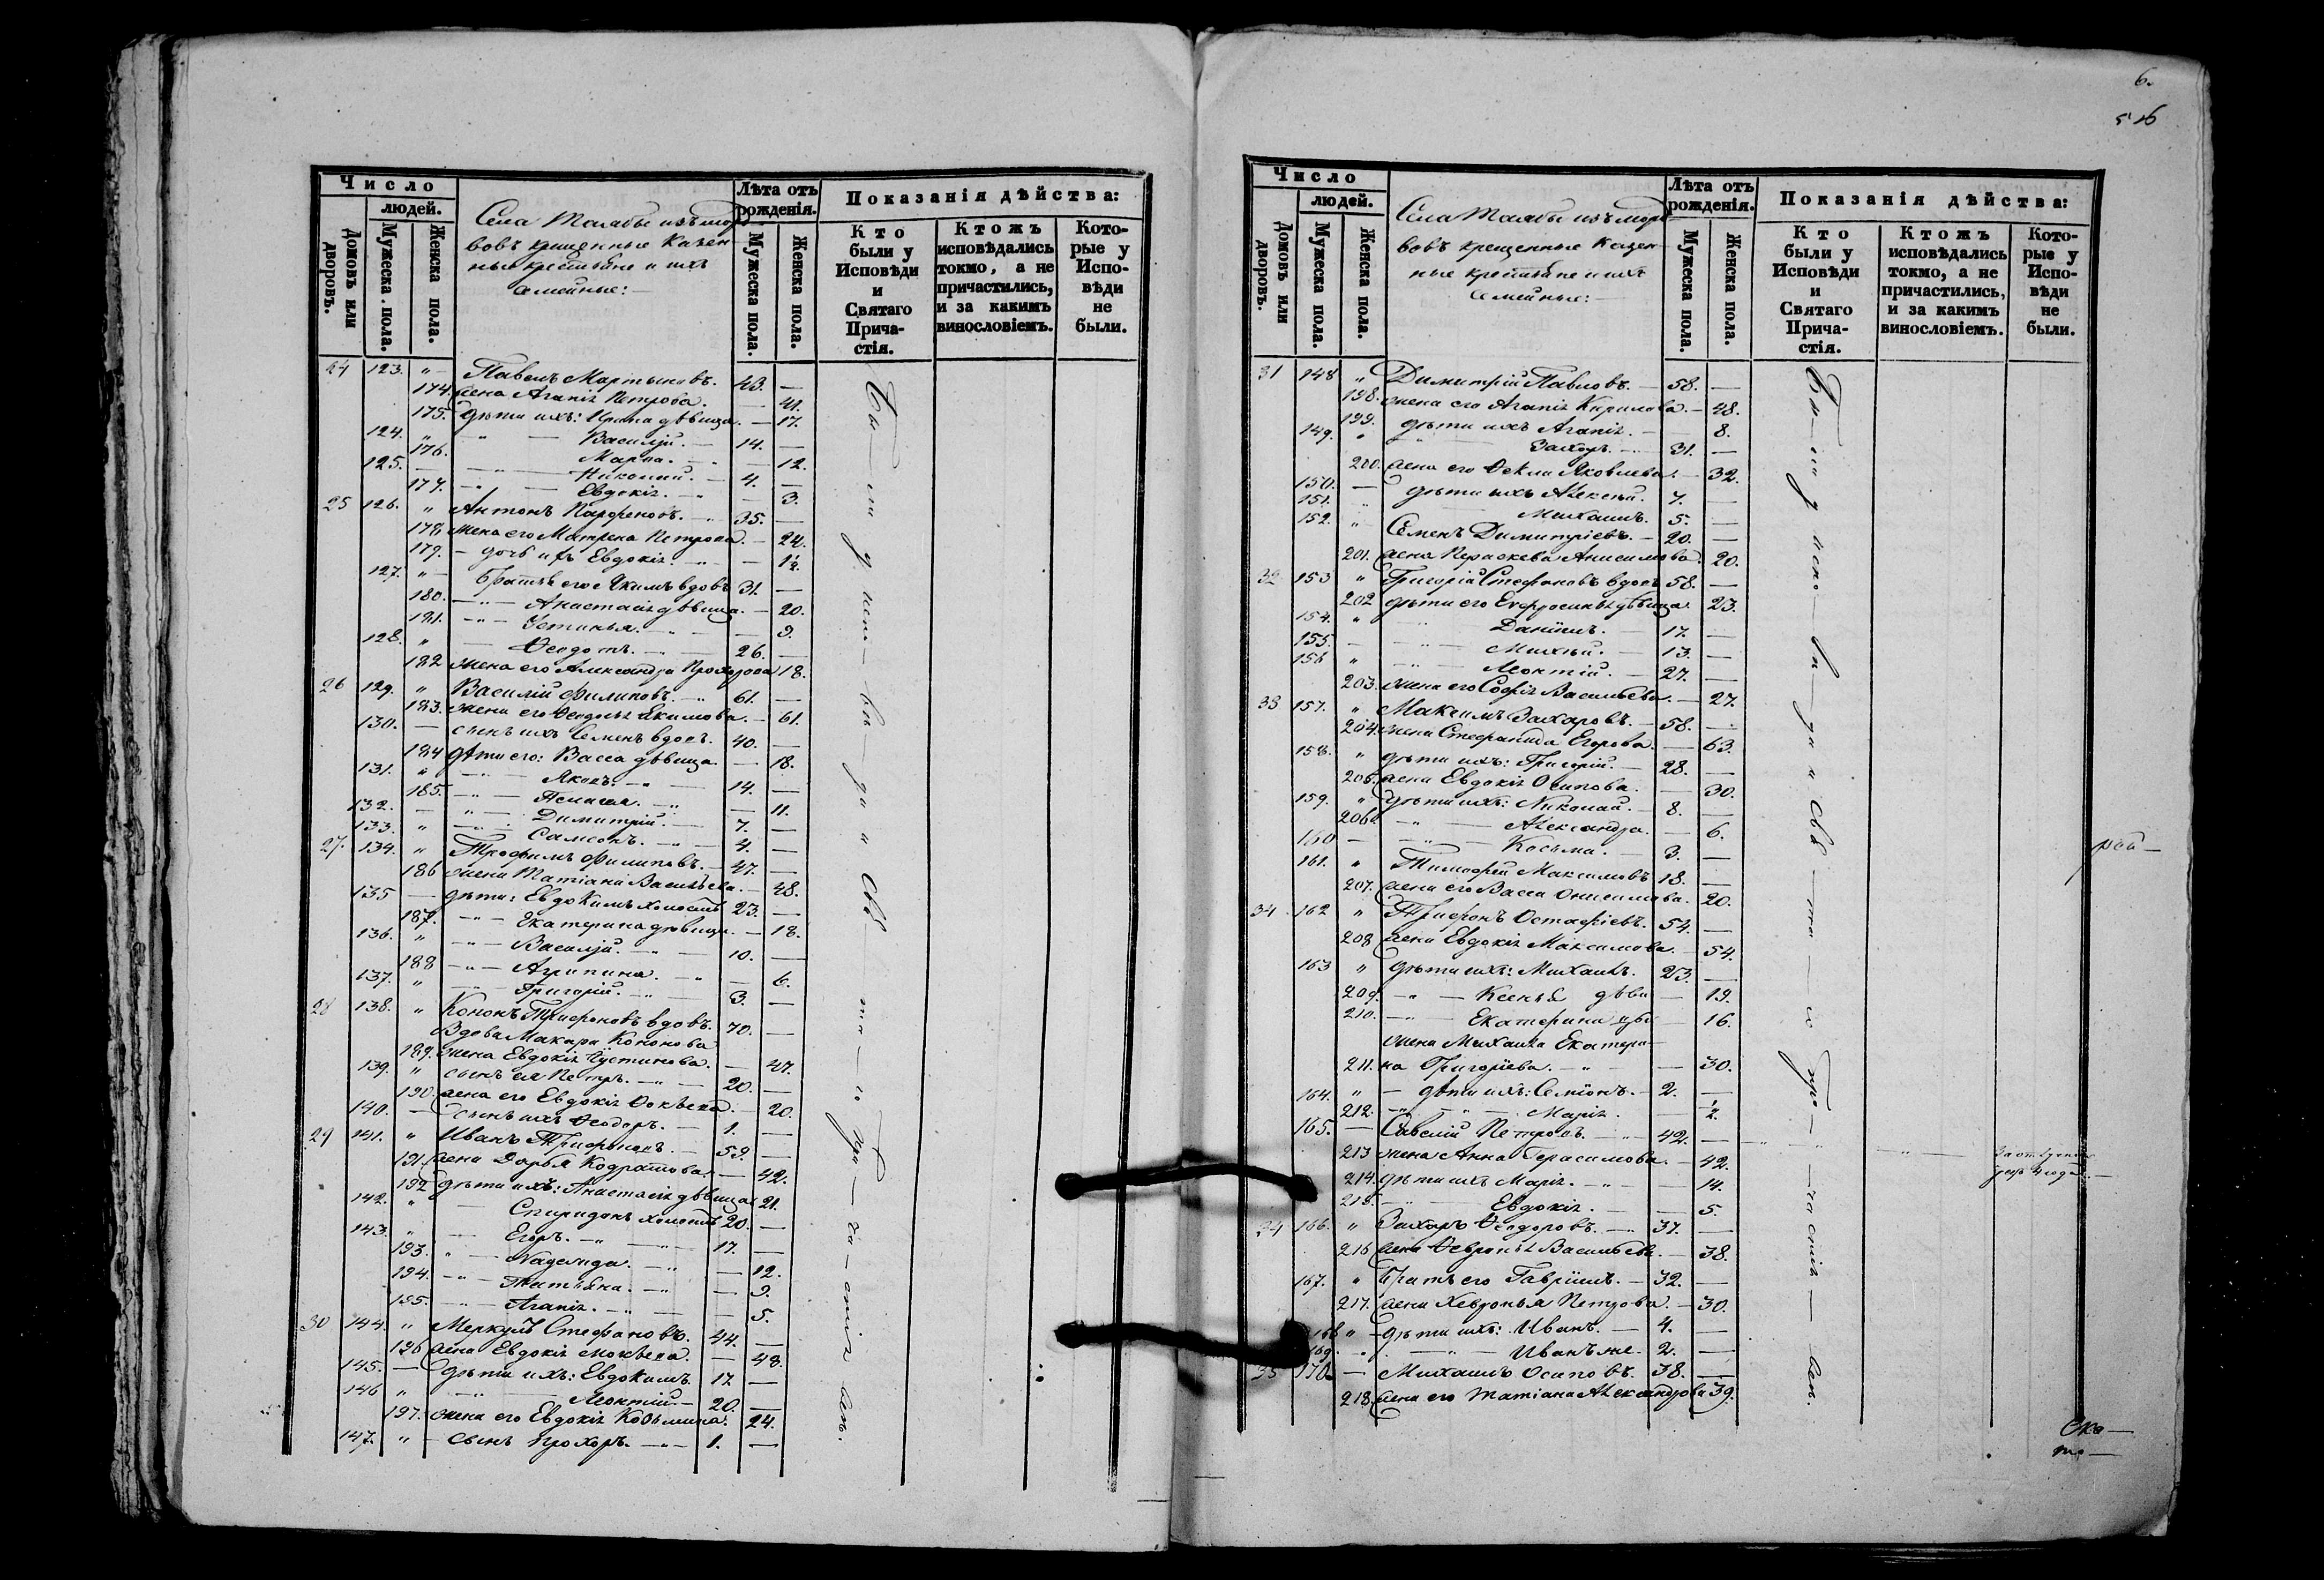 Число
людей.
Домовъ или дворовъ.
Мужеска пола.
Женска пола.
Села Талабы изъ морд
вовъ крещенные казен
ные крестьяне и ихъ
семейные:—
Лѣта отъ рожденія.
Мужеска пола.
Женска пола.
Показанія дѣйства:
Кто были у Исповѣди и Святаго Прича-стія.
Ктожъ исповѣдались токмо, а не причастились, и за какимъ винословіемъ.
Кото-рые у Испо-вѣди не были.
24 123. „ Павелъ Мартыновъ. 43. —
174. жена Агапія Петрова. — 41.
175. дѣти ихъ: Ирина дѣвица. — 17.
124. „ — Василій. — 14. —
176. Марѳа. — 12.
125. — Николай. — 4. —
177. — Евдокія. — 3.
25 126. „ Антонъ Парфеновъ. 35. —
178. жена его Матрена Петрова. — 24.
179. — дочь ихъ Евдокія. — 1½.
127. „ — братъ его Якимъ вдовъ 31. —
180. — Анастасія дѣвица. — 20.
181. — Устинья. — 9.
128. „ — Ѳедотъ. — 26. —
182 жена его Александра Прохорова 18.
26 129. „ Василій Филиповъ. 61. —
183. жена его Ѳедосья Екимова. — 61.
130. — сынъ ихъ Семенъ вдовъ. 40. —
184 дѣти его: Васса дѣвица — 18.
131. „ — Яковъ. — 14. —
185. — Пелагея. — 11.
132. — Димитрій. — 7. —
133. „ — Самсонъ. — 4. —
27. 134. „ Трофимъ Филиповъ. — 47. —
186 жена Татіана Васильева. — 48.
135 — дѣти: Евдокимъ холостъ 23. —
187. — Екатерина дѣвица. — 18.
136. „ — Василій. — 10. —
188 — Агрипина. — 6.
137. „ — Григорій. — 3. —
28 138. „ Кононъ Трифоновъ вдовъ. 70. —
Вдова Макара Кононова
189. жена Евдокія Устинова. — 47.
139. „ сынъ ея Петръ. — 20. —
190. жена его Евдокія Ѳокѣева. — 20.
140. — сынъ ихъ Ѳеодоръ. — 1. —
29 141. „ Иванъ Трифоновъ. — 59. —
191. жена Дарья Кодратова. — 42.
192 дѣти ихъ: Анастасія дѣвица 21.
142. „ — Спиридонъ холостъ 20. —
143. „ — Егоръ. — 17. —
193. „ — Надежда. — 12.
194. — Татьяна. — 9.
195. — Агапія. — 5.
30 144. „ Меркулъ Стефановъ. 44. —
196 жена Евдокія Мокѣева. — 48.
145. — дѣти ихъ: Евдокимъ 17 —
146 „ — Леонтій. — 20. —
197. жена его Евдокія Козьмина. 24.
147. „ — сынъ Прохоръ. — 1. —
Бы — ли у испо — вѣ — ди и Свя — та — го При — ча — стія — всѣ.
6.
516
Число
людей.
Домовъ или дворовъ.
Мужеска пола.
Женска пола.
Села Талабы изъ морд
вовъ крещенные казен
ные крестьяне и ихъ
семейные:—
Лѣта отъ рожденія.
Мужеска пола.
Женска пола.
Показанія дѣйства:
Кто были у Исповѣди и Святаго Прича-стія.
Ктожъ исповѣдались токмо, а не причастились, и за какимъ винословіемъ.
Кото-рые у Испо-вѣди не были.
31 148 „ Димитрій Павловъ. — 58. —
198. жена его Агапія Кирилова. — 48.
199. дѣти ихъ Агапія. — 8.
149. „ Захаръ. — 31. —
200. жена его Ѳекла Яковлева. — 32.
150. — дѣти ихъ Алексѣй. 7. —
151. „ Михаилъ. 5. —
152. „ Семенъ Димитріевъ. — 20. —
201. жена Параскева Анисимова. 20.
32 153 „ Григорій Стефановъ вдовъ 58. —
202 дѣти его Евфросинья дѣвица. 23.
154. „ Даніилъ. — 17. —
155. — Михѣй. — 13. —
156 „ Леонтій. — 27. —
203. жена его Софія Васильева. — 27.
33 157. „ Максимъ Захаровъ. — 58. —
204. жена Стефанида Егорова. — 63.
158. „ дѣти ихъ: Григорій. — 28. —
205. жена Евдокія Осипова. — 30.
159. „ дѣти ихъ: Николай. — 8. —
206. — Александра. — 6.
160 — Косьма. — 3. —
161. „ Тимофей Максимовъ 18. —
207. жена его Васса Онисимова. 20.
34 162 „ Трифонъ Остафіевъ. 54. —
208 жена Евдокія Максимова. — 54.
163 „ дѣти ихъ: Михаилъ. 23. —
209. — Ксенья дѣви — 19.
210. — Екатерина дѣви — 16.
жена Михаила Екатери—
211. на Григоріева. — 30.
164. „ — дѣти ихъ: Семіонъ. — 2. —
212. — Марія. — ½.
165. — Савелій Петровъ. — 42. —
213 жена Анна Герасимова. — 42.
214. дѣти ихъ Марія. — 14.
215. — Евдокія. — 5.
34 166. „ Захаръ Ѳеодоровъ. — 37. —
216 жена Ѳевронья Васильева. — 38.
167. „ братъ его Гавріилъ. — 32. —
217. жена Хевронья Петрова. — 30.
168 „ — дѣти ихъ: Иванъ. — 4. —
169. „ — Иванъ же. 2. —
35 170. — Михаилъ Осиповъ. 38. —
218. жена его Татіана Александрова 39.
Бы — ли у испо — вѣ — ди и Свя — та — го При — ча — стія — всѣ.